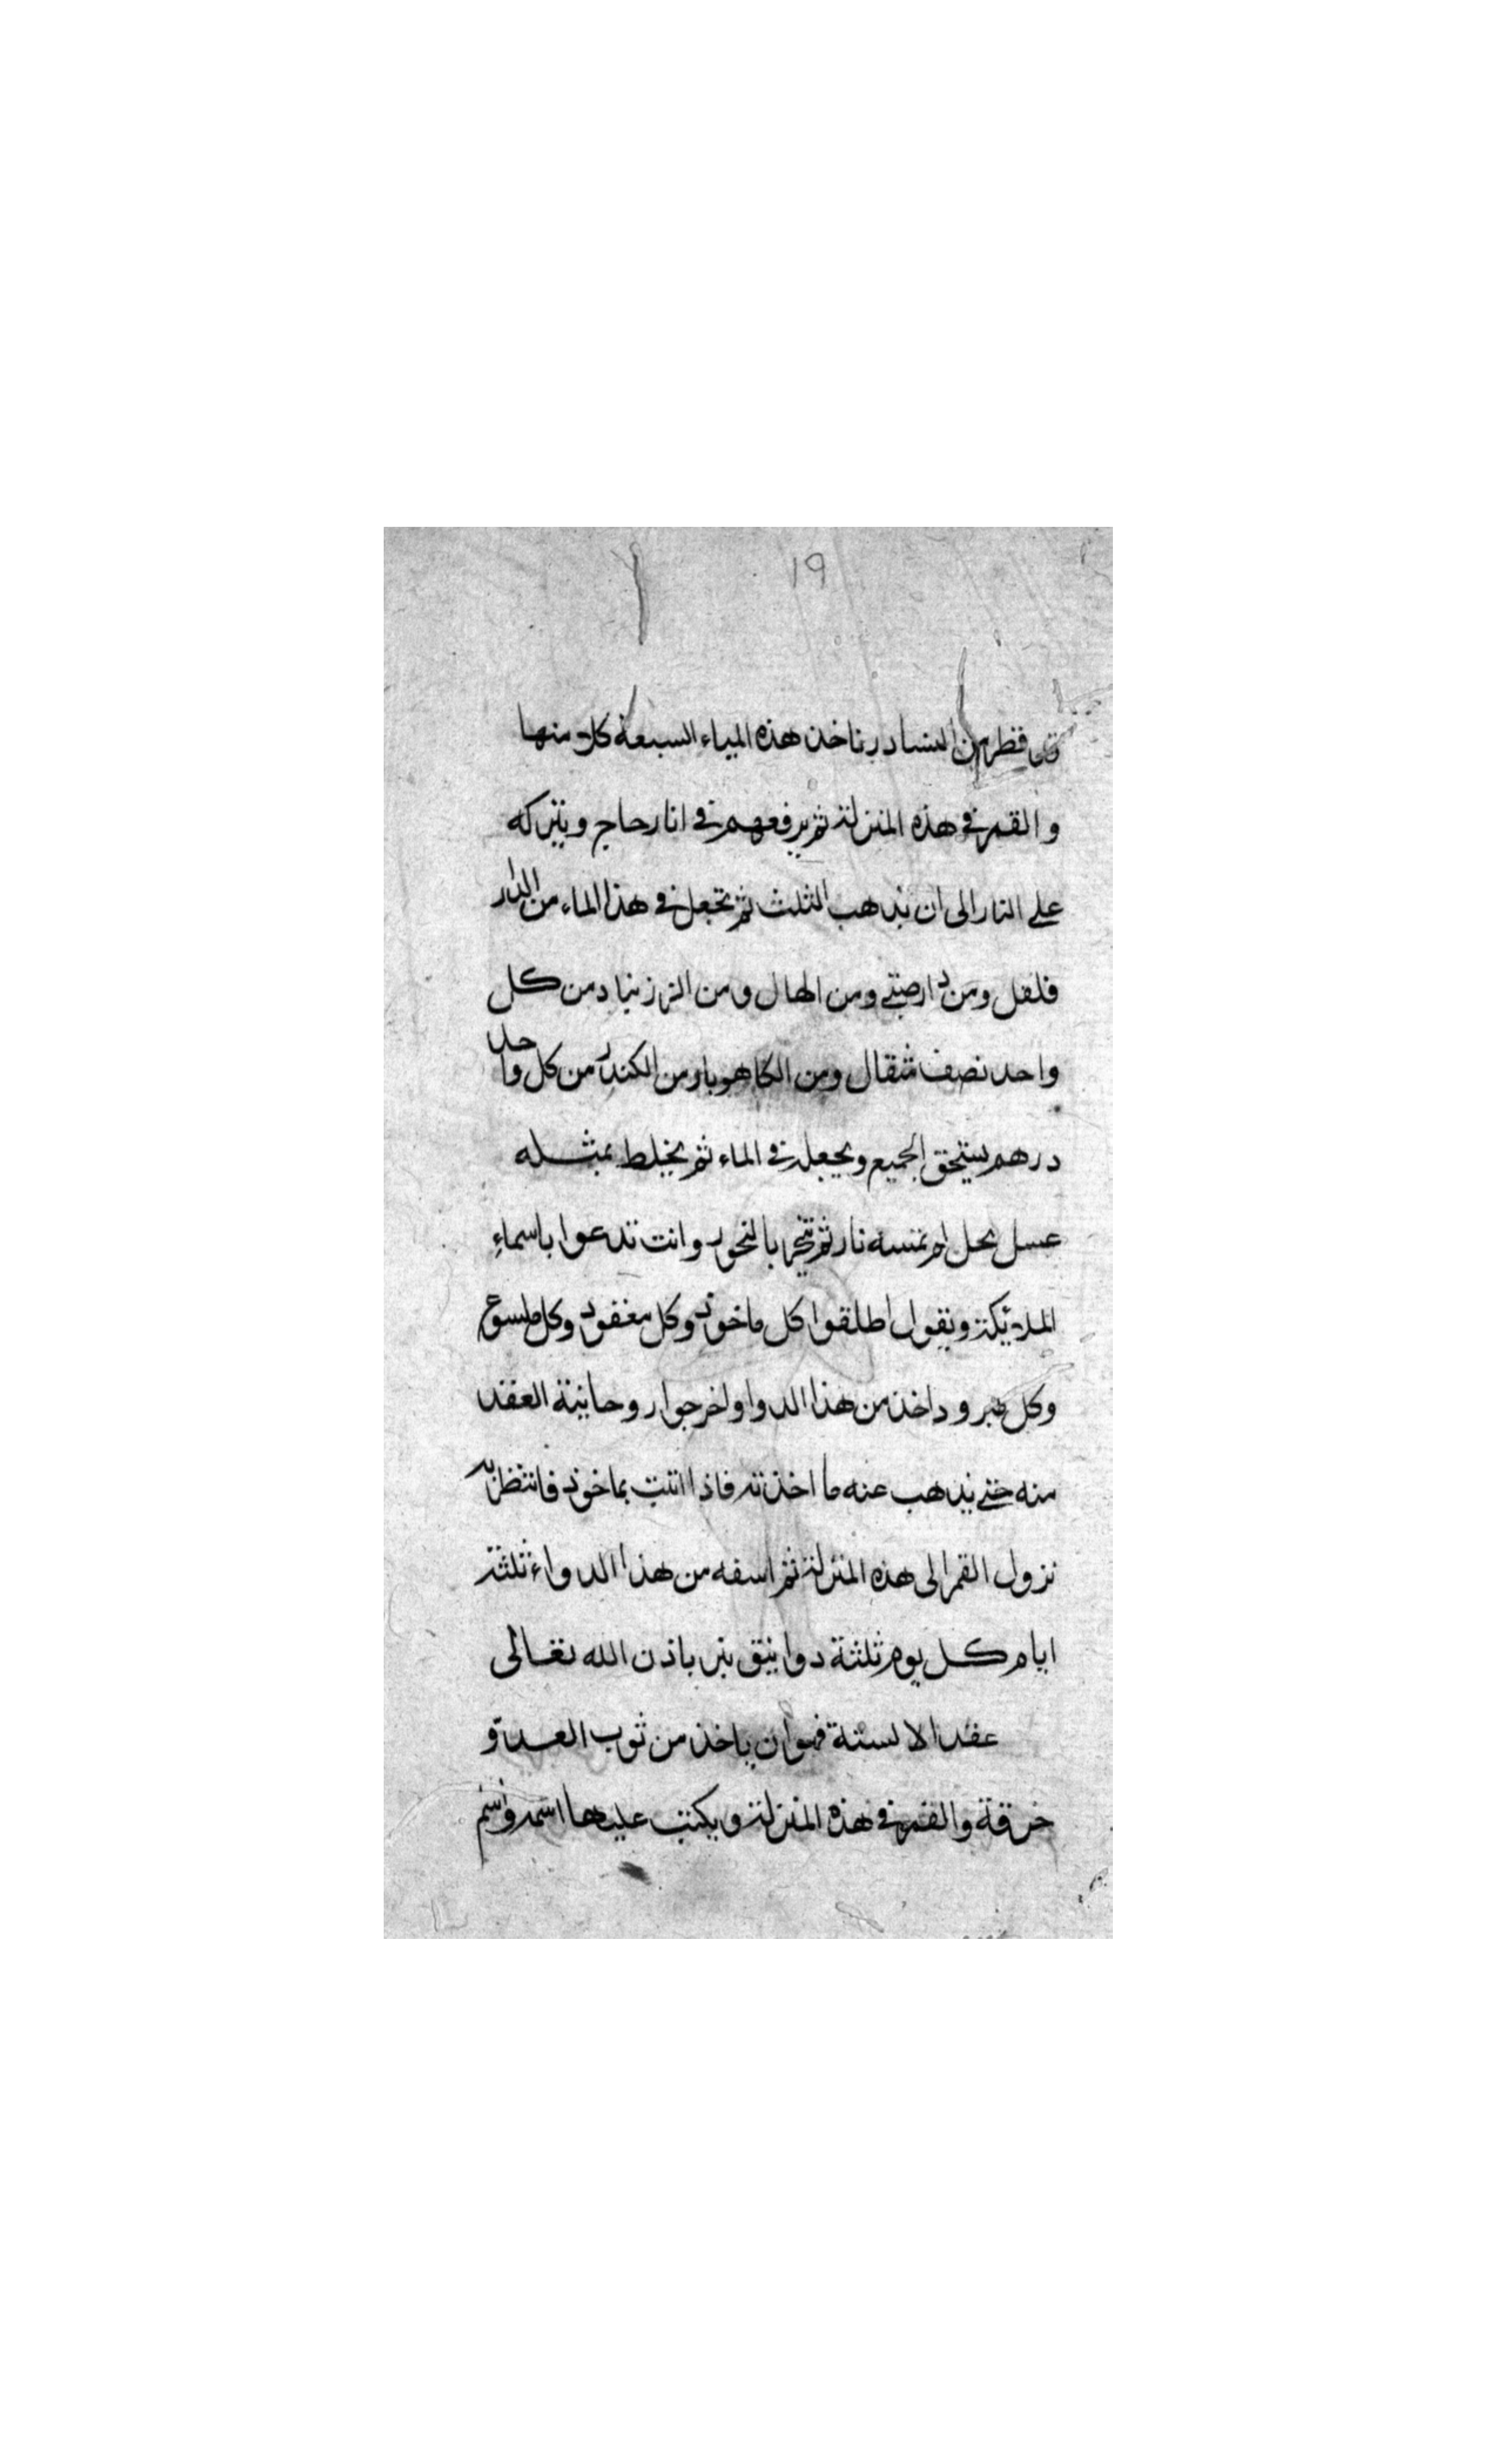 ١٩
قطر من النسادر تاخذ هذه المياء السبعة كل منها
والقمر في هذه المنزلة ثم يرفعهم في انا زجاج ويتركه
على النار الى ان يذهب الثلث ثم تجعل في هذا الماء من الدار
فلفل ومن دارصيني ومن الهال ومن الزرنباد من كل
واحد نصف مثقال ومن الكاهوبا ومن الكندر من كل واحد
درهم يسحق الجميع ويجعله في الماء ثم يخلط بمثله
عسل نحل لم تمسه نار ثم تبخر بالبخور وانت تدعوا باسماء
الملائكة وتقول اطلقوا كل ماخوذ وكل معقود وكل ملسوع
وكل مبرود اخذ من هذا الدوا واخرجوا روحانية العقد
منه حتى يذهب عنه ما اخذته فاذا اتيت بماخوذ فانتظر به
نزول القمر الى هذه المنزلة ثم اسقه من هذا الدواء ثلثة
ايام كل يوم ثلثة دوانيق يبر باذن الله تعالى
عقد الالسنة فهو ان ياخذ من ثوب العدو
خرقة والقمر في هذه المنزلة ويكتب عليها اسمه واسم